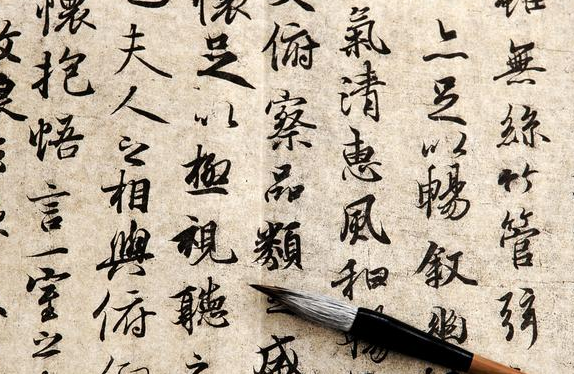 雖無絲竹管弦
亦足以暢叙幽
氣清惠風和暢
大俯察品類之盛
懷足以極視聽之
也夫人之相與俯仰
懷抱悟言一室之